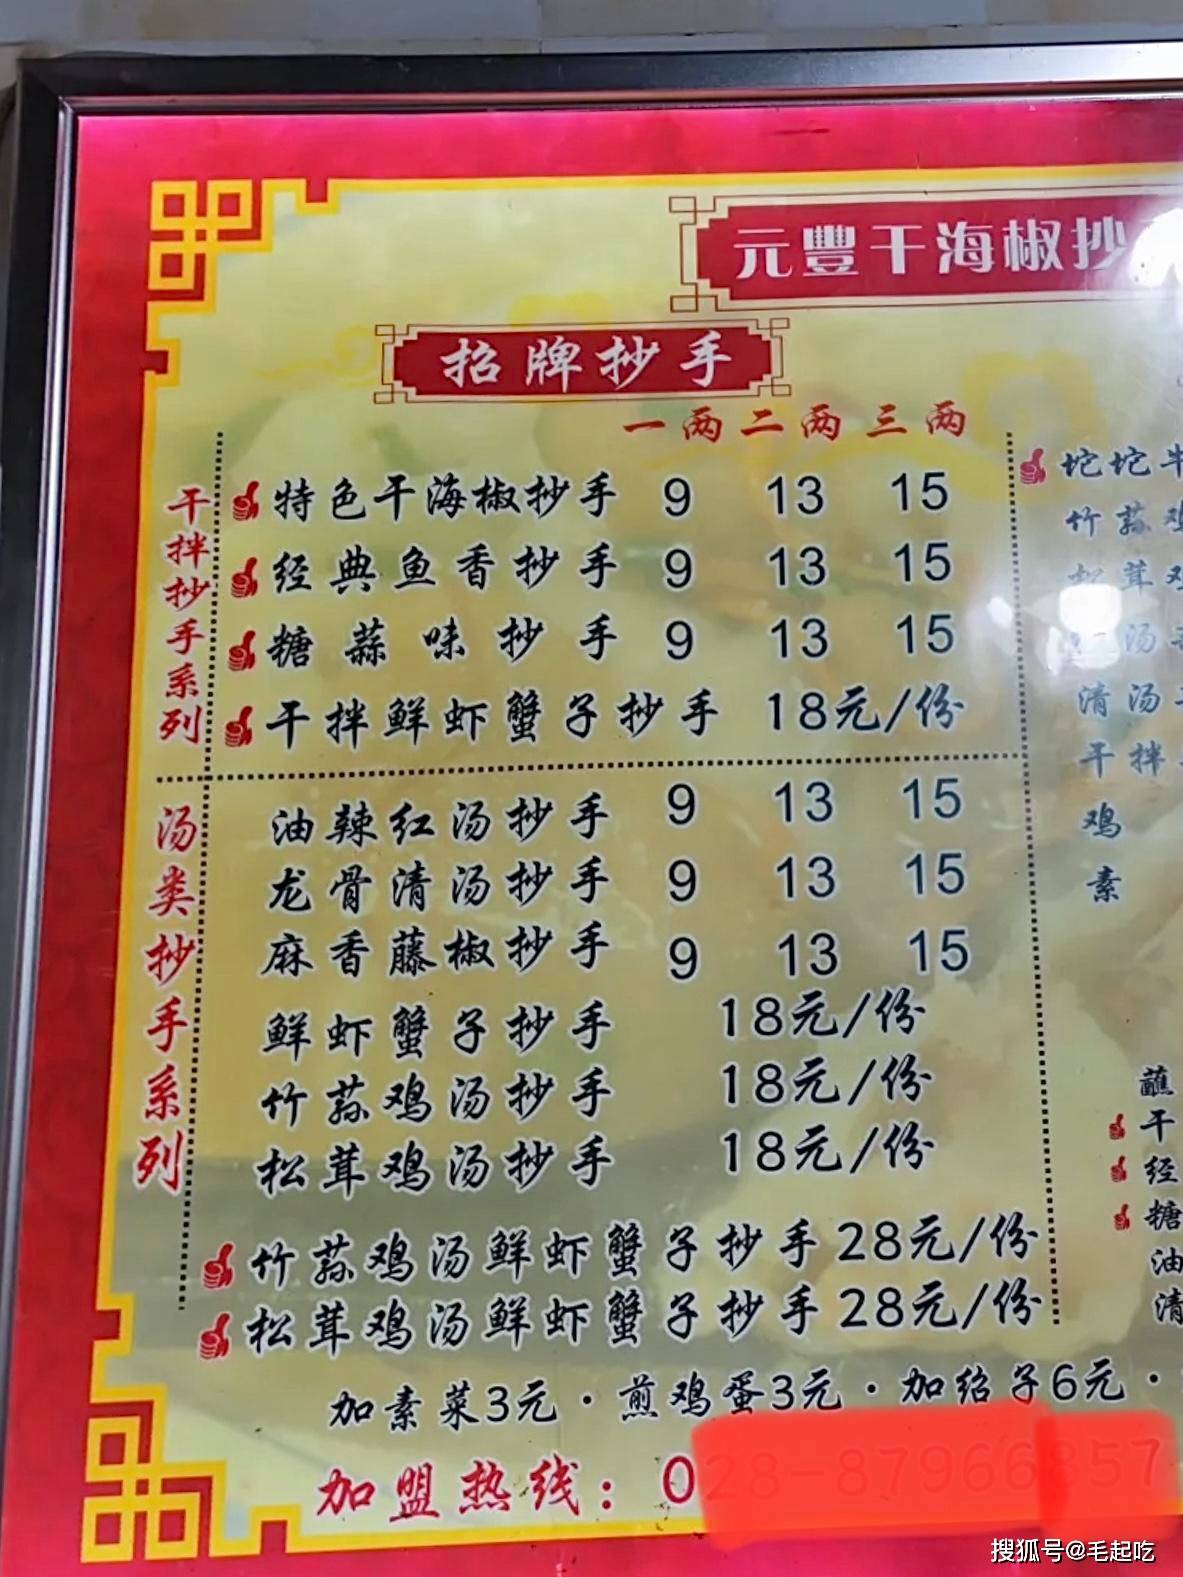 元豐干海椒抄
招牌抄手
一两 二两 三两
干拌抄手系列
特色干海椒抄手 9 13 15
经典鱼香抄手 9 13 15
糖蒜味抄手 9 13 15
干拌鲜虾蟹子抄手 18元/份
汤类抄手系列
油辣红汤抄手 9 13 15
龙骨清汤抄手 9 13 15
麻香藤椒抄手 9 13 15
鲜虾蟹子抄手 18元/份
竹荪鸡汤抄手 18元/份
松茸鸡汤抄手 18元/份
竹荪鸡汤鲜虾蟹子抄手 28元/份
松茸鸡汤鲜虾蟹子抄手 28元/份
坨坨牛
竹荪鸡
松茸鸡
汤
清汤
干拌
鸡
素
蘸
干
经
糖
油
清
加素菜3元·煎鸡蛋3元·加绍子6元·
加盟热线：0
搜狐号@毛起吃